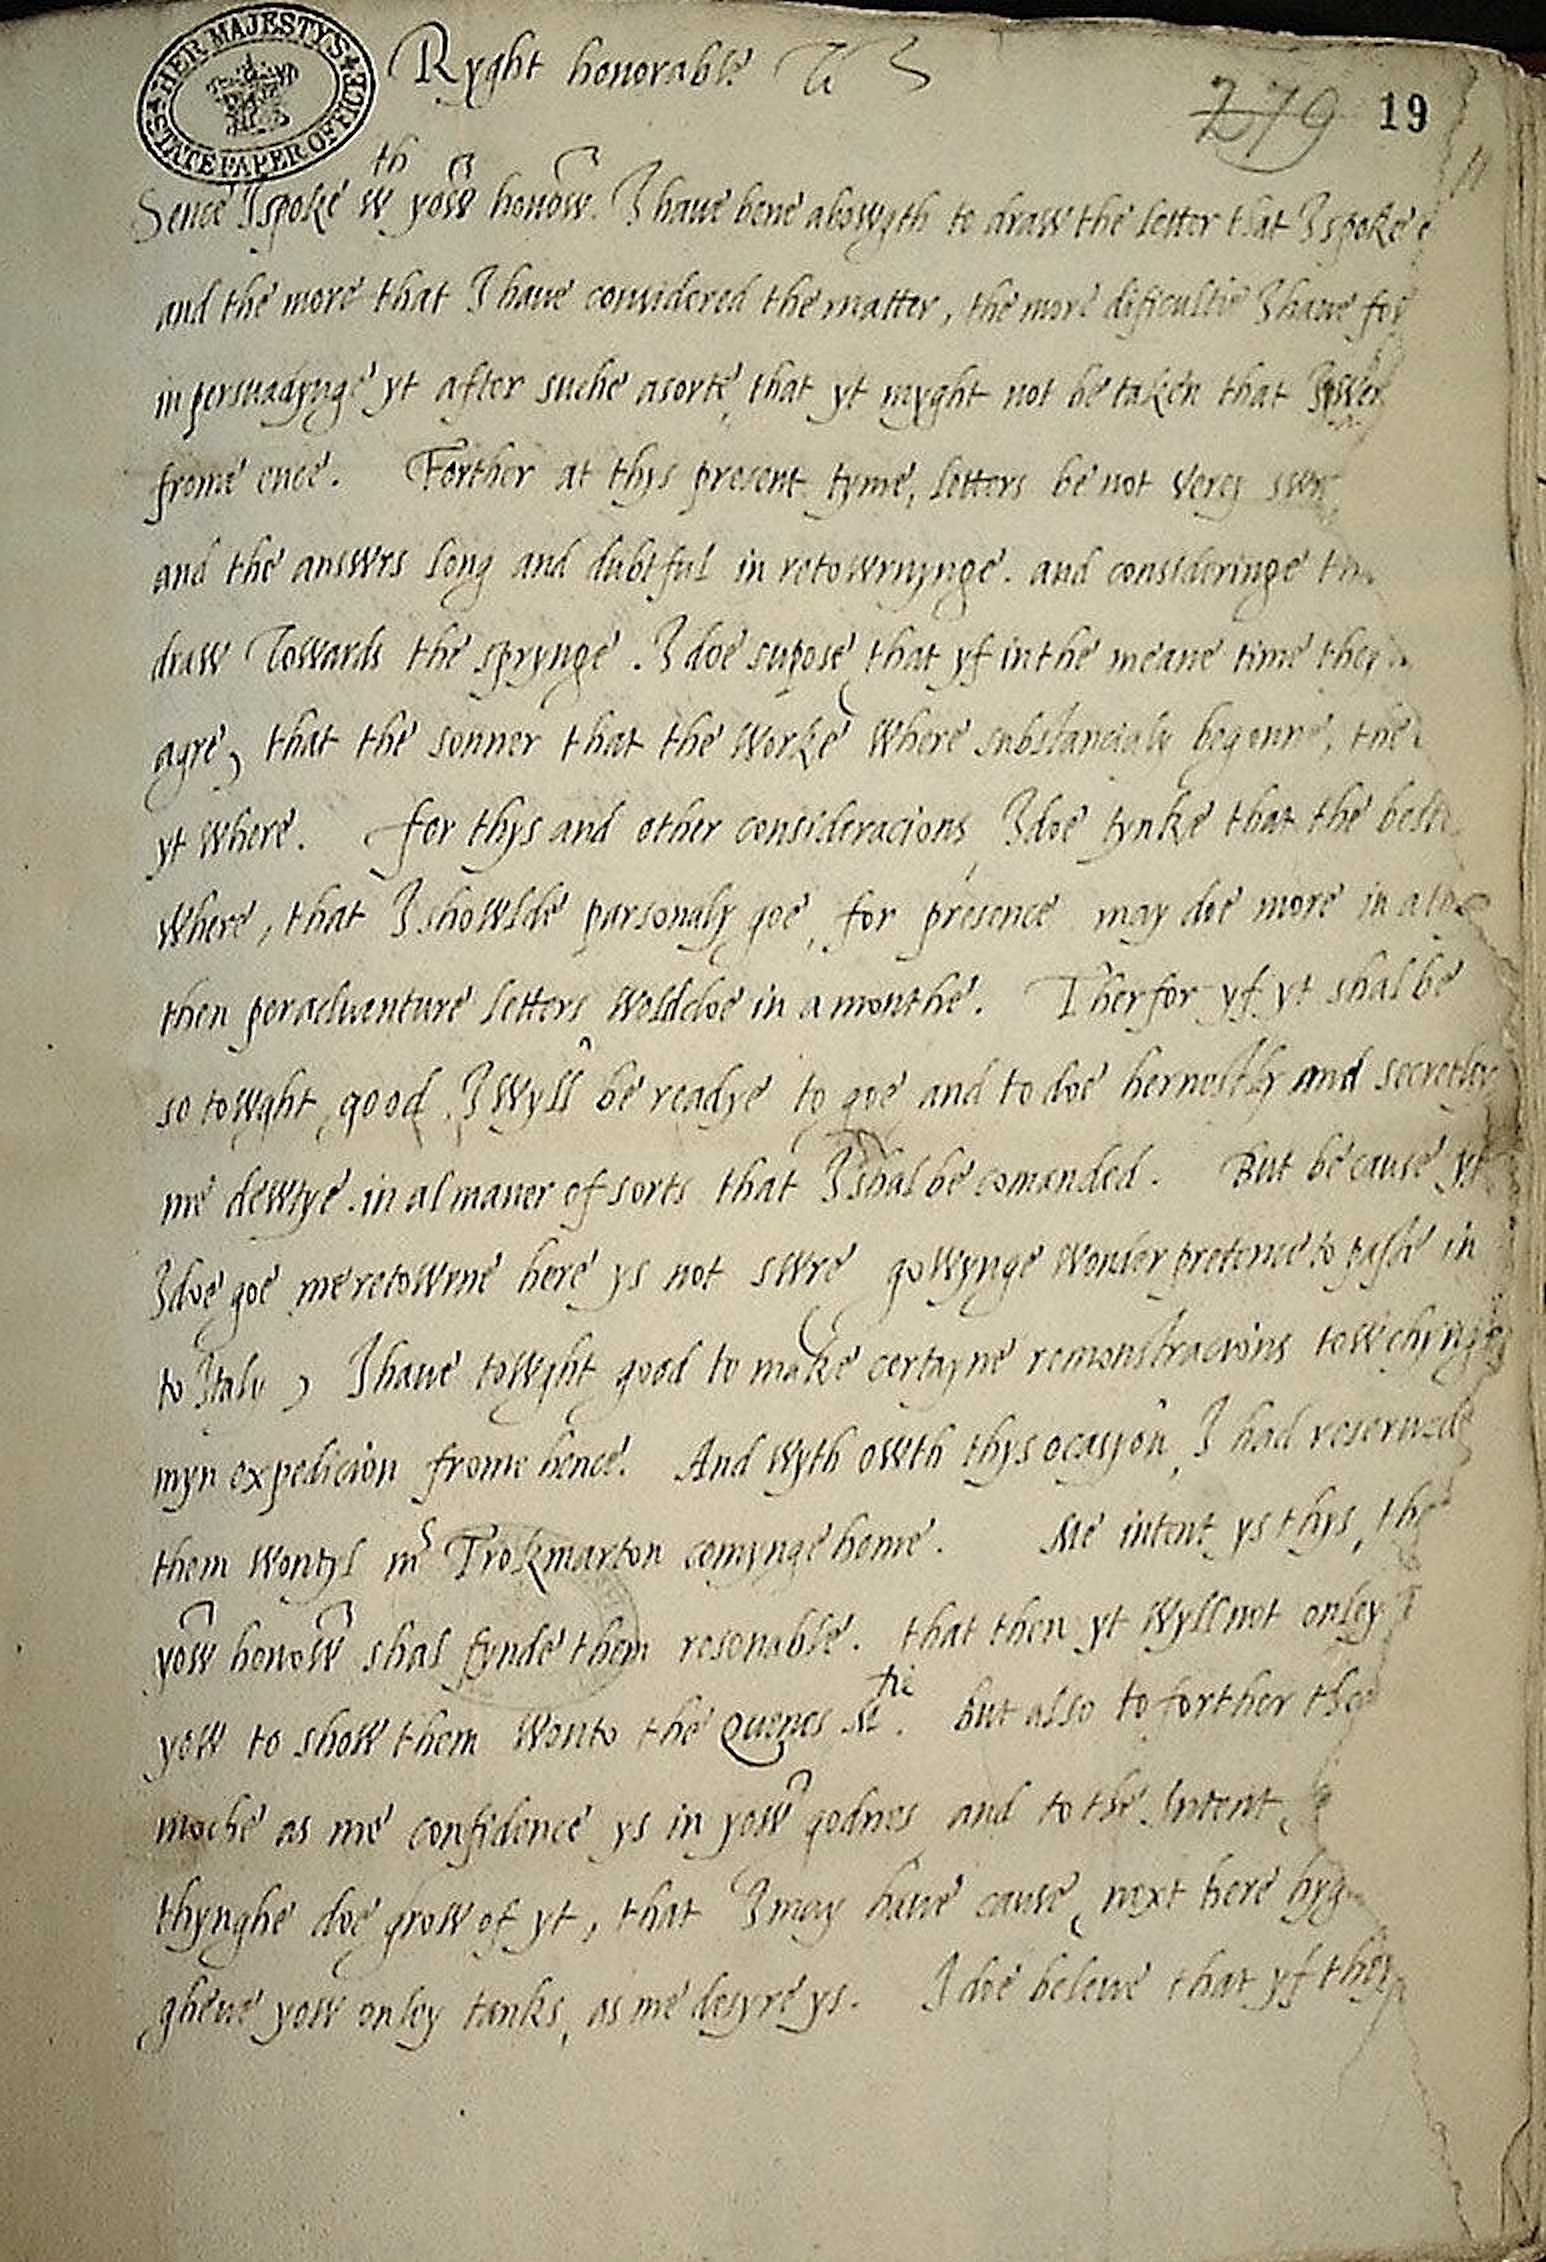 HER MAJESTY'S STATE PAPER OFFICE
Ryght honorable
279 19
Sence I spoke wth yowr honowr. I haue bene abowgth to draw the letter that I spoke
and the more that I haue considered the matter, the more dificultie I haue
in persuadynge yt after suche a sorte, that yt myght not be taken that
frome ence. Forther at thys present tyme, letters be not verey
and the answrs long and dubtful in retowrnynge. and consideringe
draw Towards the sprynge. I doe supose, that yf in the meane time
agre, that the sonner that the worke where substancialy begonne,
yt where. for thys and other consideracions, I doe tynke that the
where, that I showlde parsonaly goe, for presence may doe more in a
then peraduenture letters wold doe in a monthe. Therfor yf yt shal be
so towght good, I wyll be readye to goe and to doe hernestly and
me dewtye. in al maner of sorts that I shal be comanded. But be cause yf
I doe goe me retowrne here ys not swre gowynge wonder pretence to passe in
to Italy, I haue towght good to make certayne remonstracions
myn expedicion frome hence. And wyth owth thys ocasyon, I had
them wontyl mr Trokmarton comynge home. Me intent ys thys,
yowr honowr shal fynde them resonable. that then yt wyll not onley
yow to show them wonto the Quenes Mtie. but also to forther
moche as me confidence ys in yowr godnes and to the Intent
thynghe doe grow of yt, that I may haue cause, next here
gheue yow onley tanks, as me desyre ys. I doe beleue that yf